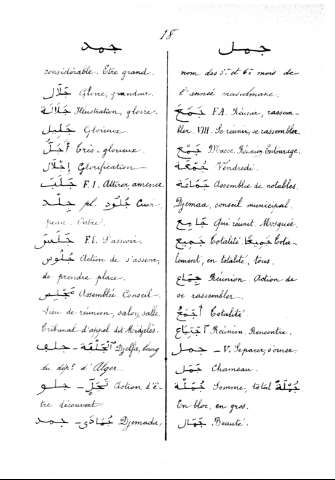 18
جمد
considérable. Être grand.
جلال Gloire, grandeur.
جلالة Illustration, gloire.
جليل Glorieux.
أجلّ Très-glorieux.
إجلال Glorification
جلب F.I. Attirer, amener.
جلد pl. جلود Cuir
Peau. Outre.
جلس F.I. S'asseoir.
جلوس Action de s'asseoir,
de prendre place.
مجلس Assemblée Conseil
lieu de réunion, salon, salle.
Tribunal d'appel dit Medjelès.
جلف - الجلفة Djelfa, bourg
du dépt d'Alger.
جلو - تجلّي Action d'ê-
tre découvert
جمد - جمادى Djemada,
جمل
nom des 5e et 6e mois de
l'année musulmane.
جمع F.A. Réunir, rassem-
bler VIII. Se réunir, se rassembler.
جمع Masse, Réunion, Entourage.
جمعة Vendredi.
جماعة Assemblée de notables.
Djemaa, conseil municipal.
جامع Qui réunit. Mosquée.
جميع Totalité جميعا Tota-
lement, en totalité, tous.
جماع Réunion Action de
se rassembler.
أجمع Totalité
اجتماع Réunion Rencontre.
جمل - V. Se parer, s'orner.
جمل Chameau.
جملة Somme, total جملة
En bloc, en gros.
جمال Beauté.